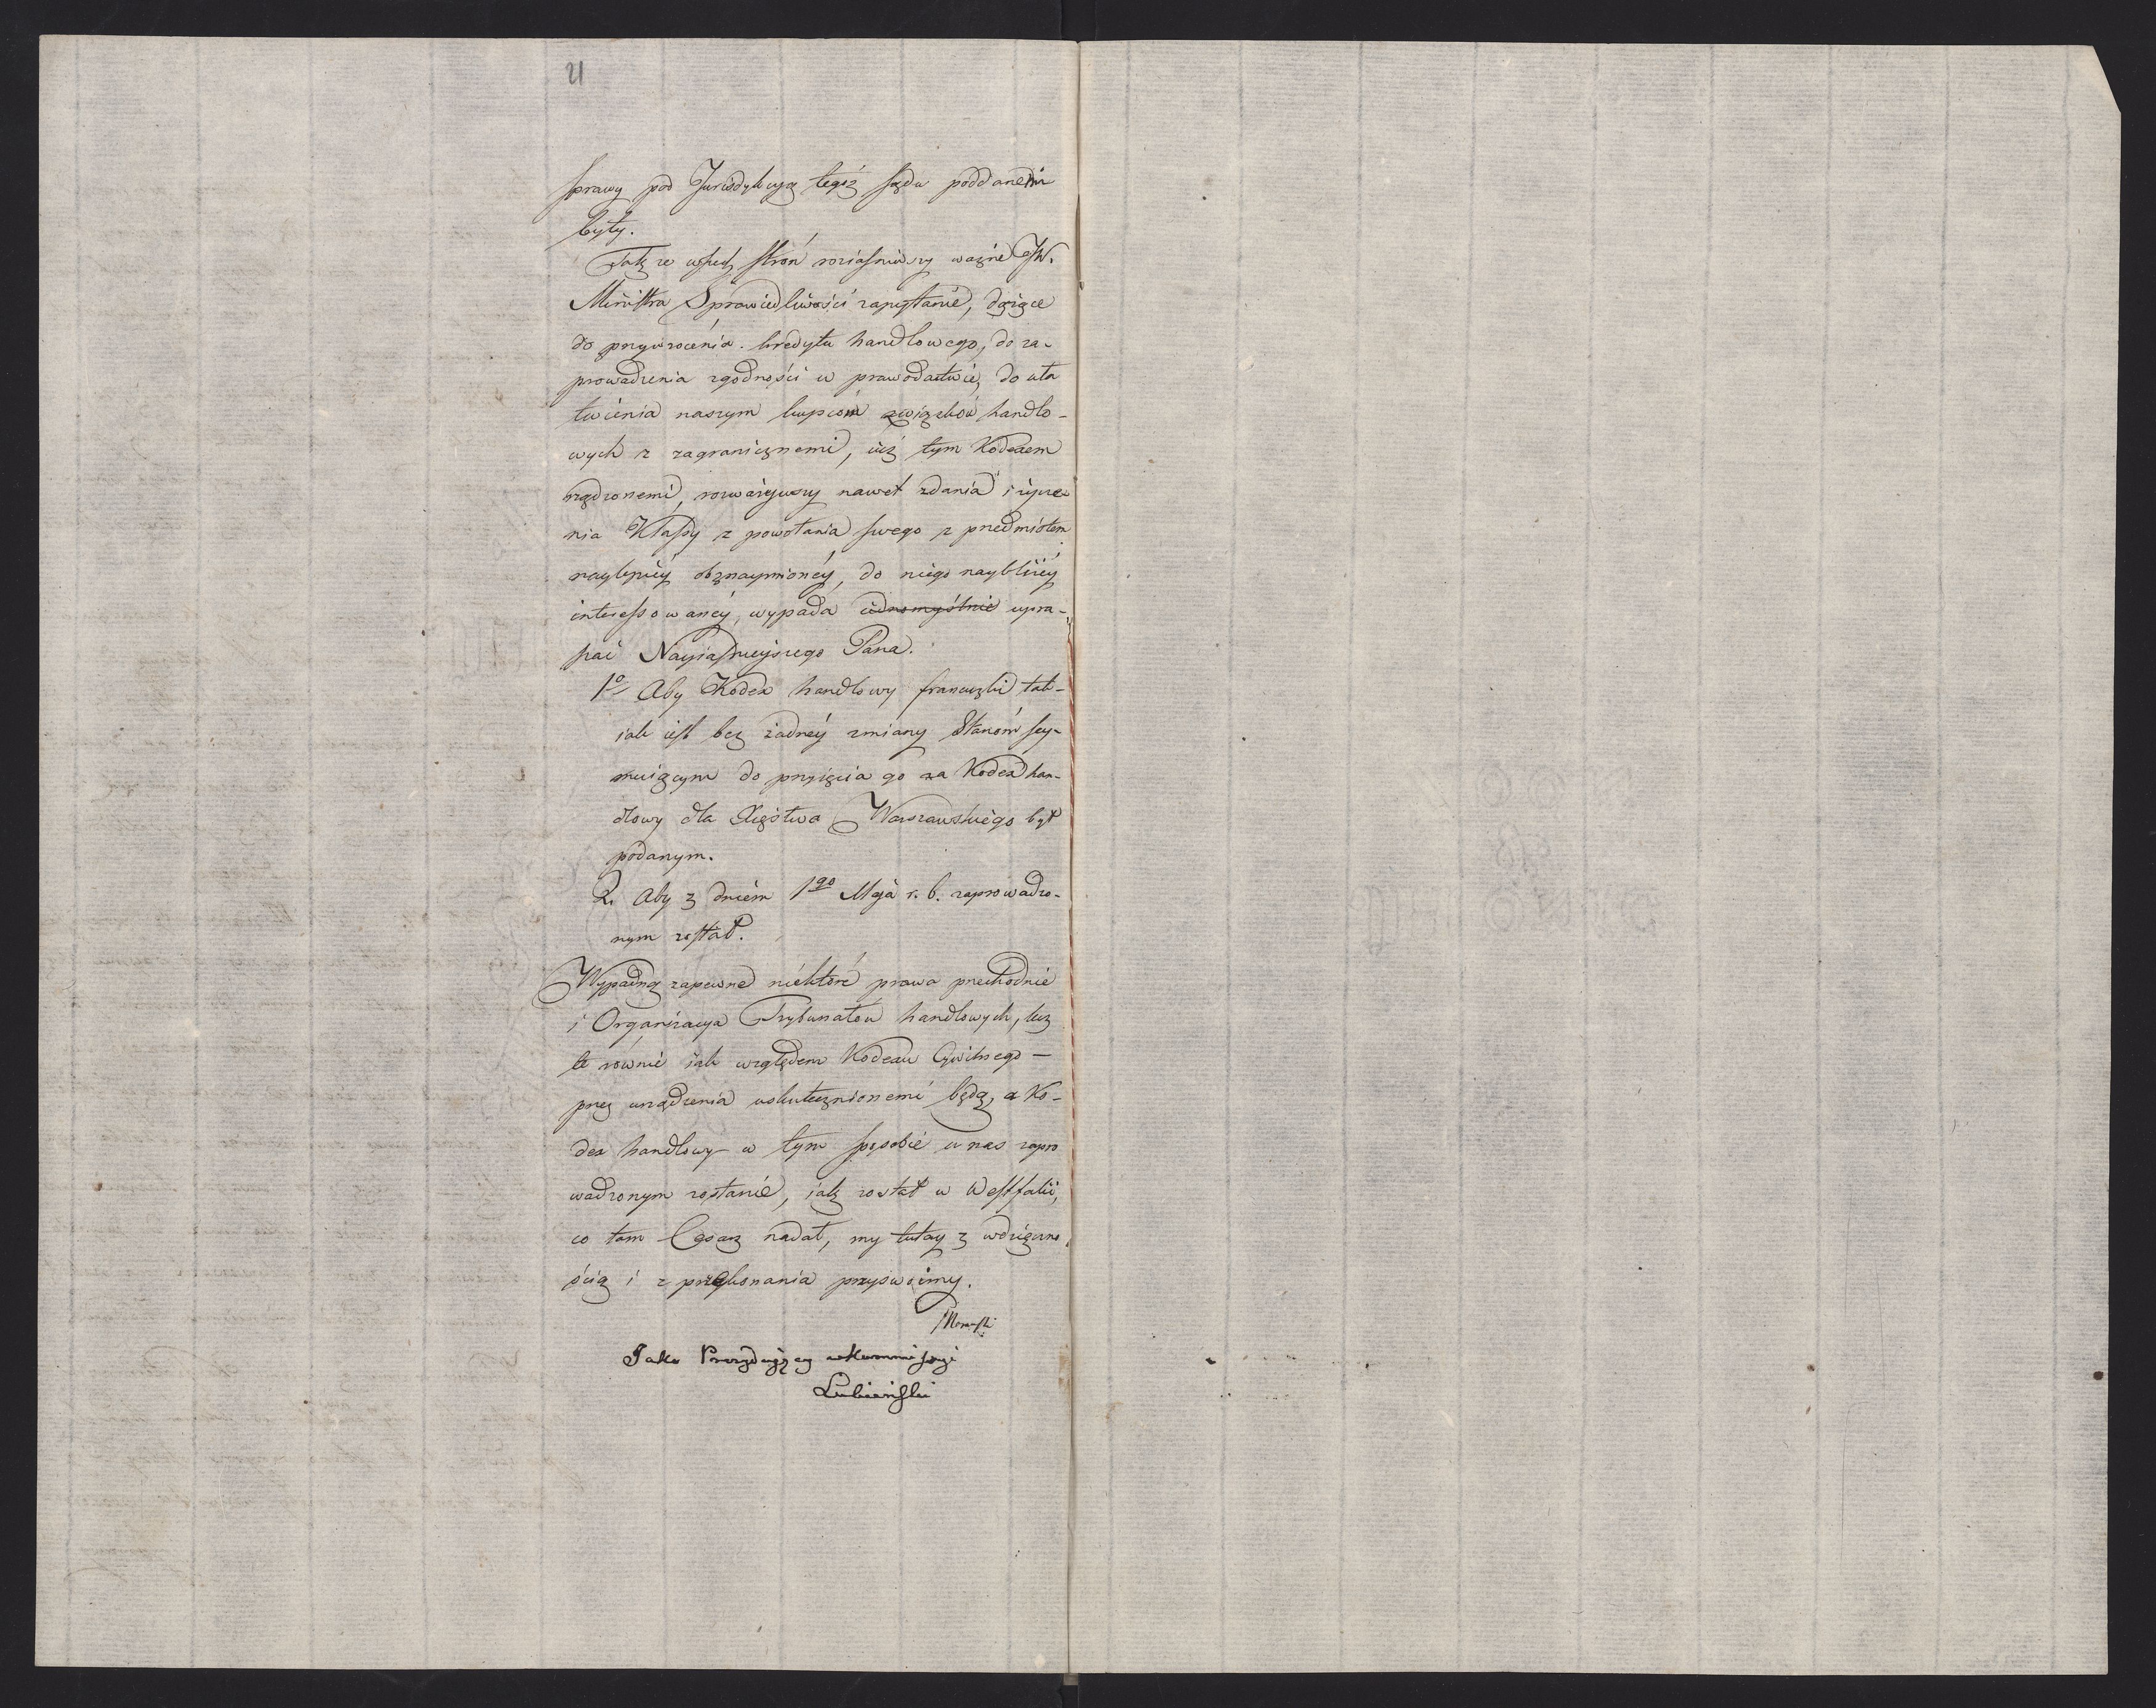 21
sprawy pod Jurisdykcyą tegoż sądu poddanemi
były.
Tak ze wszech stron roziaśniwszy ważne JW.
Ministra Sprawiedliwości zapytanie, dążące
do przywrócenia kredytu handlowego, do za-
prowadzenia zgodności w prawodactwie, do uła
twienia naszym kupcom związków handlo-
wych z zagranicznemi, iuż tym Kodexem
rządzonemi, rozważywszy nawet zdania i życze
nia Klassy z powołania swego z przedmiotem
naylepiéy obznaymionéy, do niego naybliżéy
interessowanéy, wypada iednomyślnie upra-
szać Nayiaśnieyszego Pana.
1º Aby Kodex handlowy francuzki tak
iak iest bez żadnéy zmiany Stanom sey-
muiącym do przyięcia go za Kodex han-
dlowy dla Xięstwa Warszawskiego był
podanym.
2. Aby z dniem 1go Maja r. b. zaprowadzo-
nym został.
Wypadną zapewne niektóre prawa przechodnie
i Organizacya Trybunałow handlowych, lecz
te równie iak względem Kodexu Cywilnego —
przez urządzenia uskutecznionemi będą, a Ko-
dex handlowy w tym sposobie u nas zapro
wadzonym zostanie, iak został w Westfalii,
co tam Cesarz nadał, my tutay z wdzięczno
ścią i z przekonania przyswoimy.
Morawski
Jako Prezyduiący w Kommissyi
Lubieński